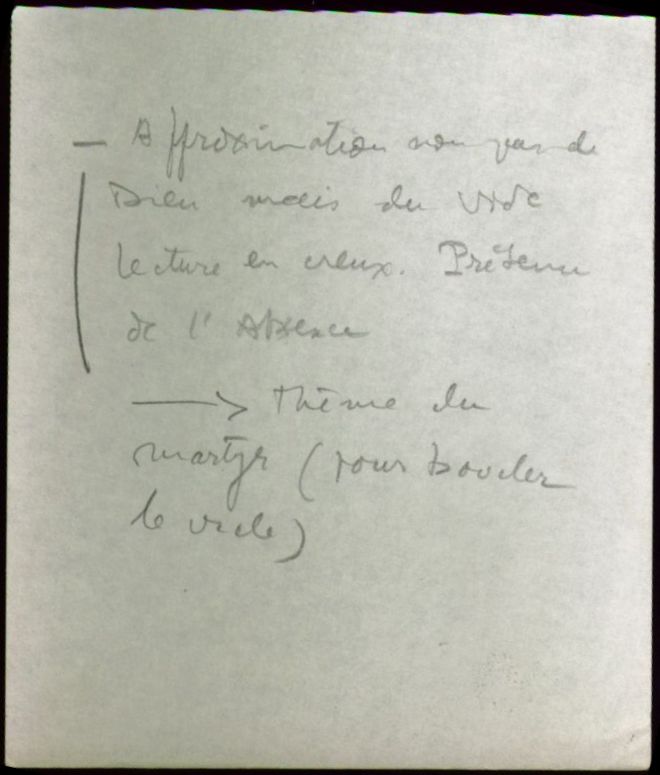 — Approximation non pas de
Dieu mais du vide
lecture en creux. Présence
de l'Absence
⟶ thème du
martyr (pour boucler
le vide)